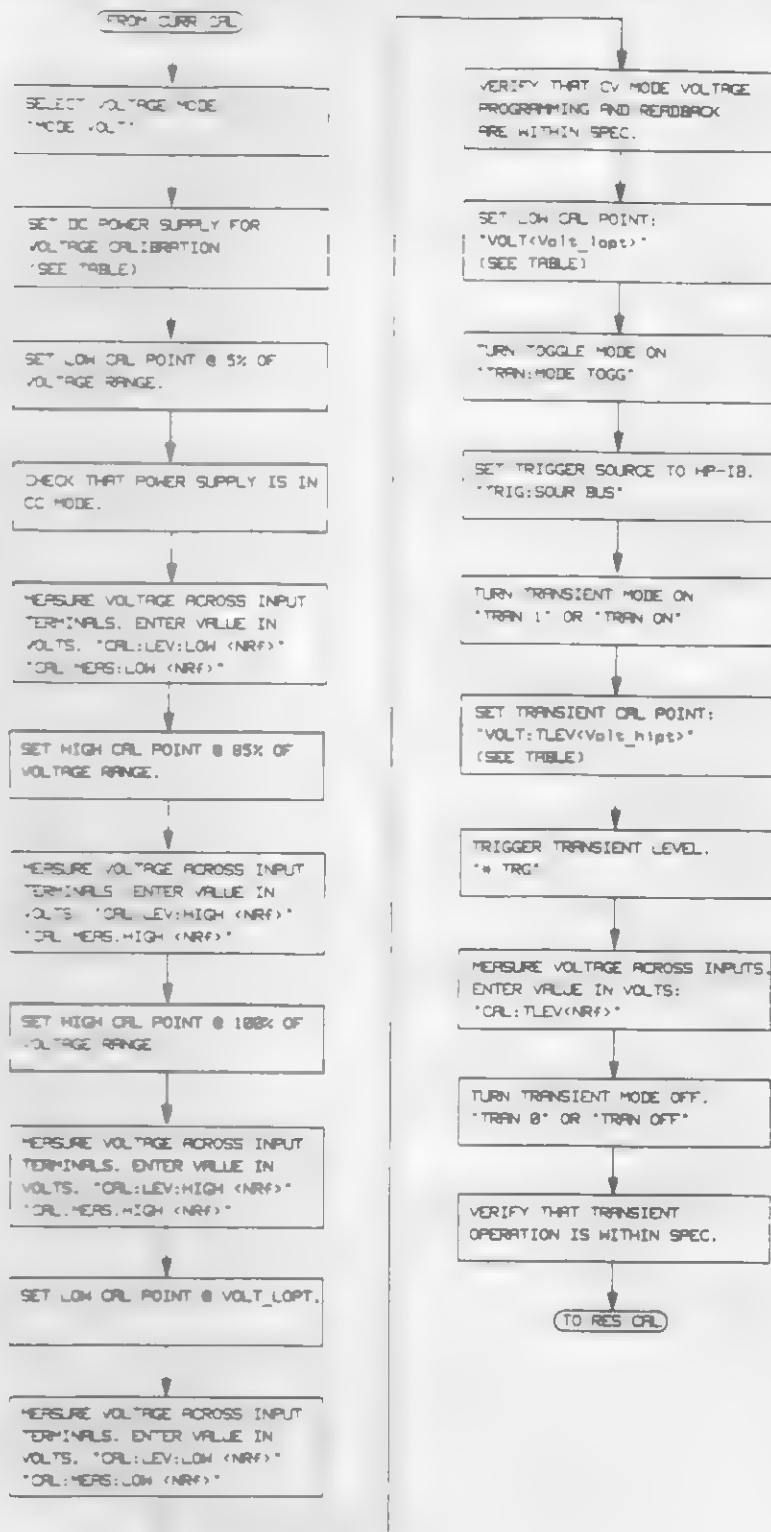 FROM CURR CAL
SELECT VOLTAGE MODE
"MODE VOLT"
SET DC POWER SUPPLY FOR
VOLTAGE CALIBRATION
(SEE TABLE)
SET LOW CAL POINT @ 5% OF
VOLTAGE RANGE.
CHECK THAT POWER SUPPLY IS IN
CC MODE.
MEASURE VOLTAGE ACROSS INPUT
TERMINALS. ENTER VALUE IN
VOLTS. "CAL:LEV:LOW <NRf>"
"CAL MEAS:LOW <NRf>"
SET HIGH CAL POINT @ 85% OF
VOLTAGE RANGE.
MEASURE VOLTAGE ACROSS INPUT
TERMINALS ENTER VALUE IN
VOLTS. "CAL LEV:HIGH <NRf>"
"CAL MEAS.HIGH <NRf>"
SET HIGH CAL POINT @ 100% OF
VOLTAGE RANGE
MEASURE VOLTAGE ACROSS INPUT
TERMINALS. ENTER VALUE IN
VOLTS. "CAL:LEV:HIGH <NRf>"
"CAL.MEAS.HIGH <NRf>"
SET LOW CAL POINT @ VOLT_LOPT.
MEASURE VOLTAGE ACROSS INPUT
TERMINALS. ENTER VALUE IN
VOLTS. "CAL:LEV:LOW <NRf>"
"CAL:MEAS:LOW <NRf>"
VERIFY THAT CV MODE VOLTAGE
PROGRAMMING AND READBACK
ARE WITHIN SPEC.
SET LOW CAL POINT:
"VOLT<Volt_lopt>"
(SEE TABLE)
TURN TOGGLE MODE ON
"TRAN:MODE TOGG"
SET TRIGGER SOURCE TO HP-IB.
"TRIG:SOUR BUS"
TURN TRANSIENT MODE ON
"TRAN 1" OR "TRAN ON"
SET TRANSIENT CAL POINT:
"VOLT:TLEV<Volt_hipt>"
(SEE TABLE)
TRIGGER TRANSIENT LEVEL.
"* TRG"
MEASURE VOLTAGE ACROSS INPUTS.
ENTER VALUE IN VOLTS:
"CAL:TLEV<NRf>"
TURN TRANSIENT MODE OFF.
"TRAN 0" OR "TRAN OFF"
VERIFY THAT TRANSIENT
OPERATION IS WITHIN SPEC.
TO RES CAL